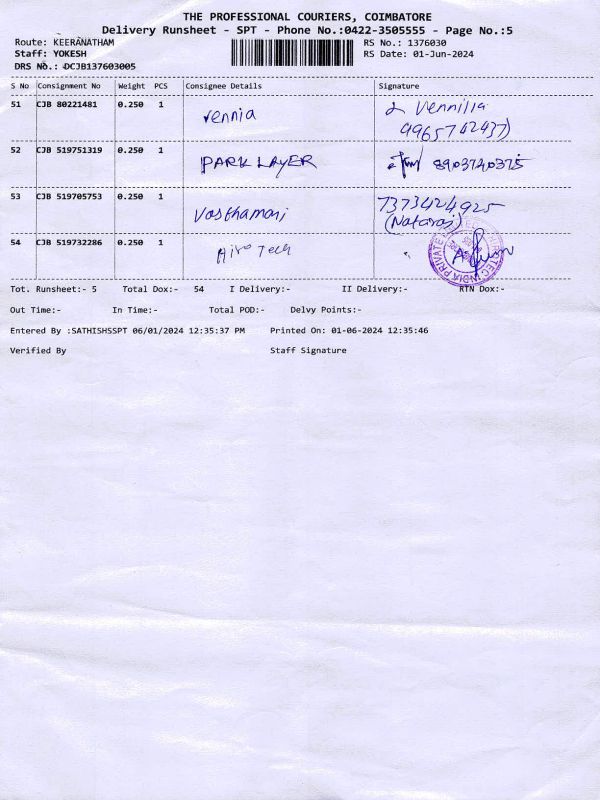 THE PROFESSIONAL COURIERS, COIMBATORE
Delivery Runsheet - SPT - Phone No.:0422-3505555 - Page No.:5
Route: KEERANATHAM RS No.: 1376030
Staff: YOKESH RS Date: 01-Jun-2024
DRS No.: DCJB137603005
S No Consignment No Weight PCS Consignee Details Signature
51 CJB 80221481 0.250 1 Vennia Vennilla
9965742437
52 CJB 519751319 0.250 1 PARK LAYER 8903740375
53 CJB 519705753 0.250 1 Vasthamari 7373424925
(Nataraj)
54 CJB 519732286 0.250 1 Hiro Tech
Tot. Runsheet:- 5 Total Dox:- 54 I Delivery:- II Delivery:- RTN Dox:-
Out Time:- In Time:- Total POD:- Delvy Points:-
Entered By :SATHISHSSPT 06/01/2024 12:35:37 PM Printed On: 01-06-2024 12:35:46
Verified By Staff Signature